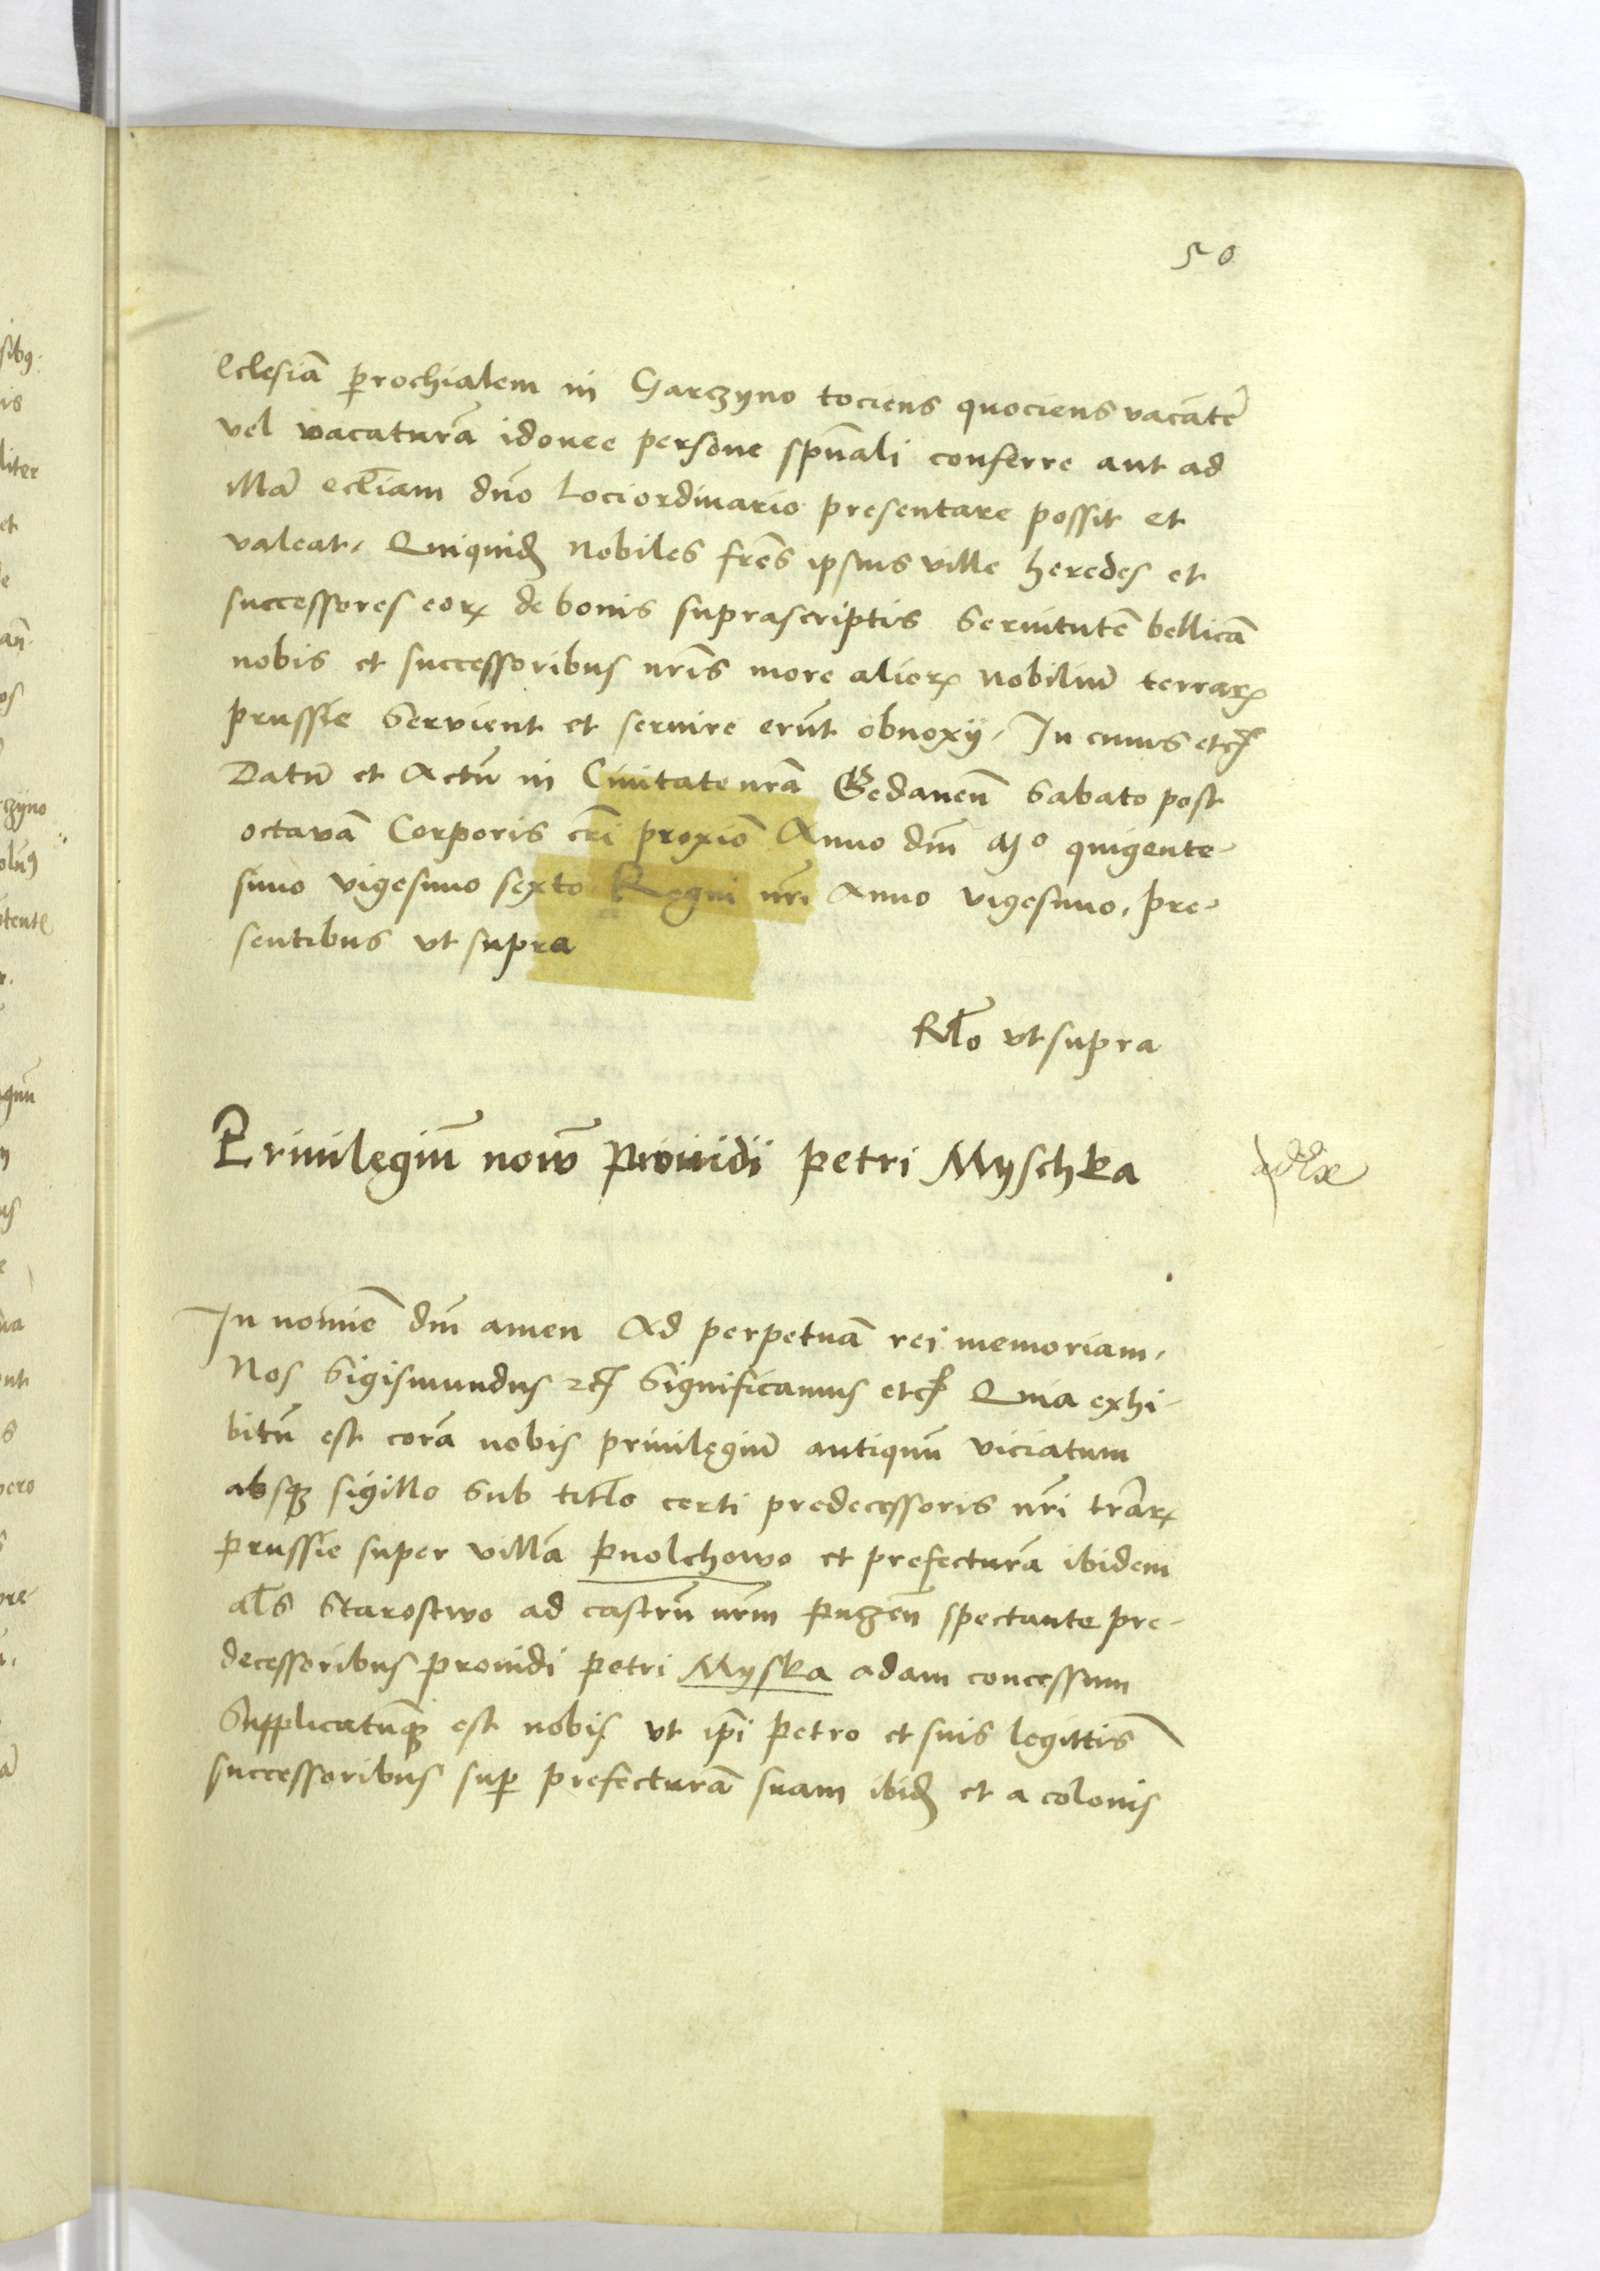 50
Eclesiā parrochialem in Garczyno tociens quociens vacātē
vel vacaturā idonee persone spūali conferre aut ad
illā eccliam dno Lociordinario presentare possit et
valeat. Quiquid nobiles frēs ipsius ville heredes et
successores eoꝝ de bonis suprascriptis Servitutē bellicā
nobis et successoribus nrīs more alioꝝ nobiliū terraꝝ
prussie Servient et servire erūt obnoxij. In cuius etc
Datū et Actū in Civitate nrā Gedanen̄ Sabato post
octavā Corporis cri proximo Anno dni Mº quigente-
simo vigesimo sexto Regni nri Anno vigesimo, pre-
sentibus vt supra
Rlo vt supra
Privilegiū nouū providi Petri Myschka
In noīne dni amen Ad perpetuā rei memoriam.
Nos Sigismundus etc Significamus etc Quia exhi-
bitū est corā nobis privilegiū antiquū viciatum
absqꝫ sigillo Sub titlo certi predecessoris nri trāꝝ
prussie super villā Puolchowo et prefecturā ibidem
als Starostwo ad castrū nrm Puczen̄ spectante pre-
decessoribus providi Petri Myska adam concessum
Supplicatūqꝫ est nobis vt ipi Petro et suis legittīs
successoribus sup prefecturā suam ibid et a colonis